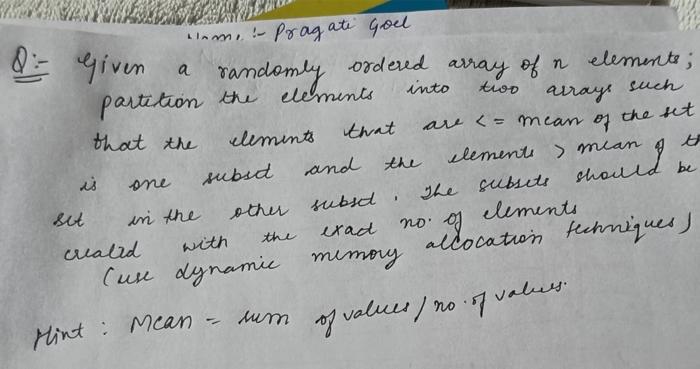 Name :- Pragati Goel
Q:- Given a randomly ordered array of n elements;
partition the elements into two arrays such
that the elements that are <= mean of the set
is one subset and the elements > mean of
set in the other subset. The subsets should be
created with the exact no. of elements
(use dynamic memory allocation techniques)
Hint : Mean = sum of values / no. of values.